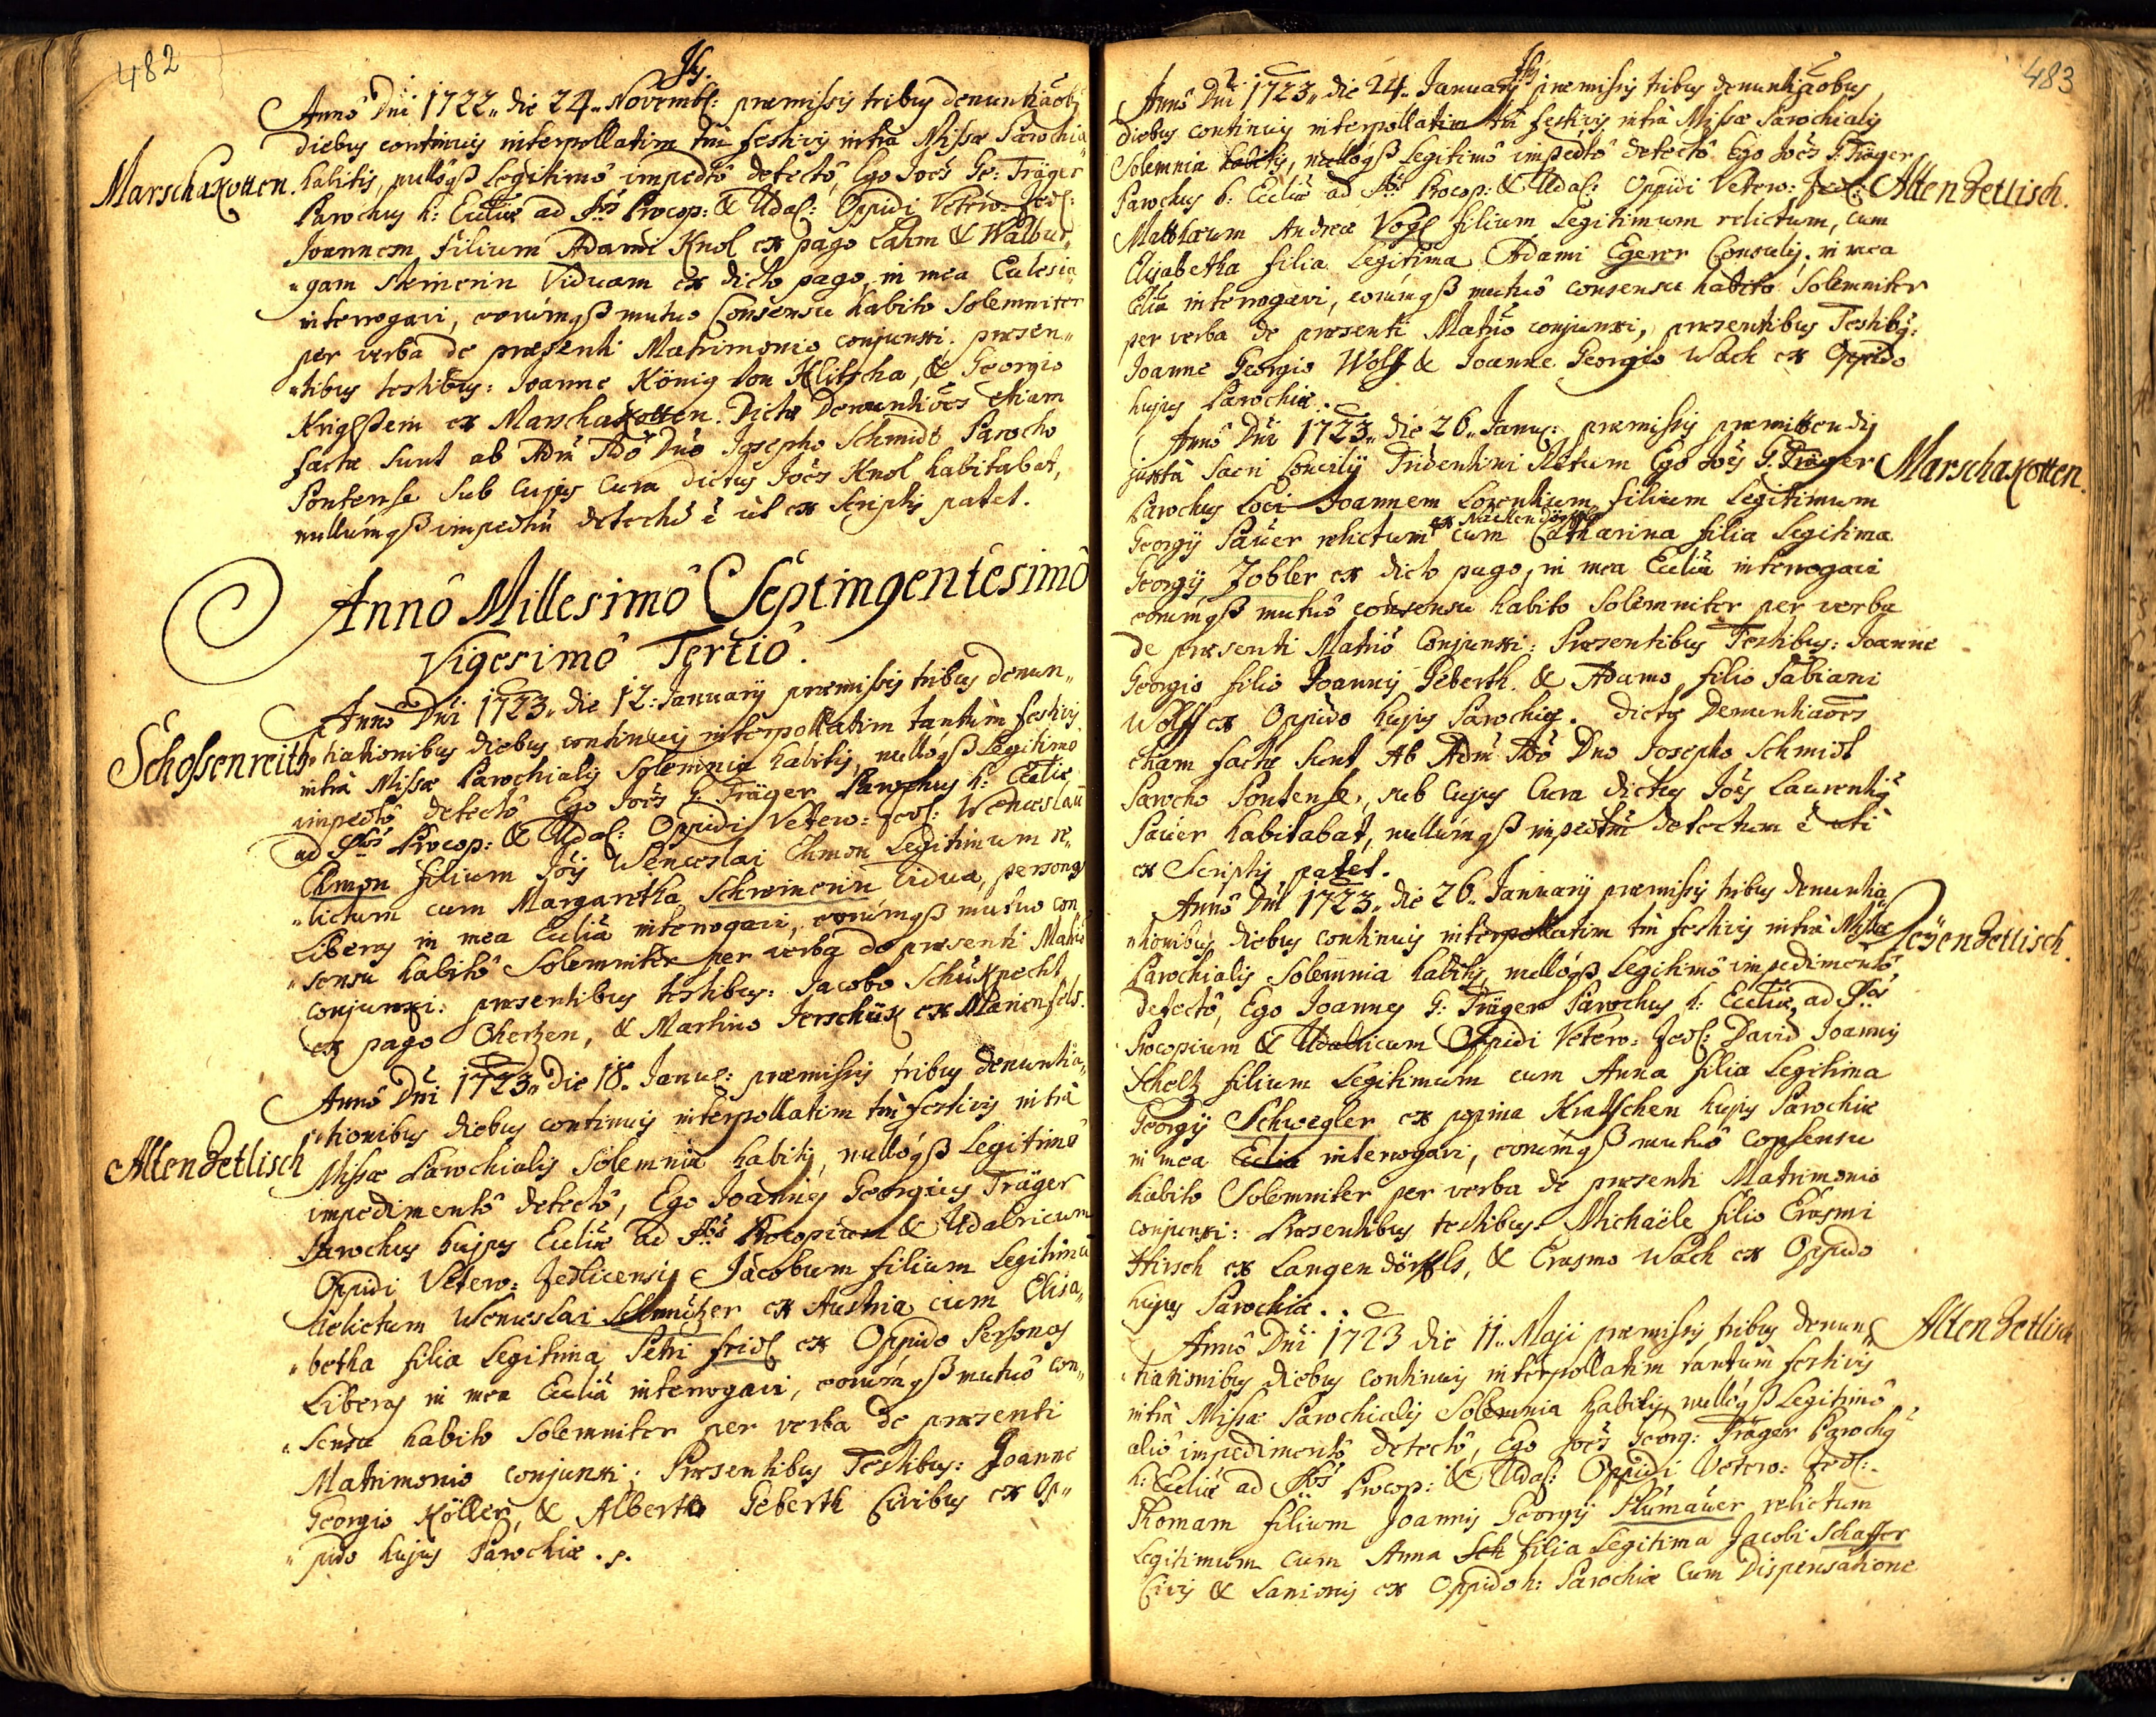 482
Anno Dni 1722 „ die 24 „ Novemb: præmissis tribus denuntiãoб
diebus continuis interpollatim tm̃ festivis intra Missæ Parochia„
Marschakotten.
habitis, nullóqß Legitimô impedtô detectô, Ego Joẽs Ge: Träger
Parochus h: Eccliæ ad SSos Procop: & Udal: Oppidi Vetero= Zedl:
Joannem filium Adami Knol ex pago Lahm & Walbur„
„gam Steinerin Viduam ex dicto pago, in mea Eclesia
interrogavi, eorúmqß mutuo Consensu habito Solemniter
per verba de præsenti Matrimonio conjunxi. præsen„
„tibus testibus: Joanne König von Klitscha, & Georgio
ex Marschakotten. Dictæ Denuntiãoẽs etiam
factæ sunt ab Adm̃ Rdo Dno Josepho Schmidt Parocho
Pontense sub cujus Cura dictus Joẽs Knol habitabat,
nullúmqß impedtũ detectũ ẽ ut ex scriptis patet.
Annô Millesimô Septingentesimô
Vigesimô Tertiô.
Anno Dni 1723 „ die 12: Januarÿ præmissis tribus denun„
Schossenreith.
„tiationibus diebus continuis interpollatim tantùm festivis
intra Missæ Parochialis Solemnia habitis, nullóqß Legitimô
impedtô detectô Ego Joẽs G: Träger Parochus h: Eccliæ
ad SSos Procop: & Udal: Oppidi Vetero= Zedl: Wenceslaũ
Ehmon filium Joẽs Wenceslai Ehmon Legitimum re„
„lictum cum Margaretha Schreinerin Vidua, personas
Liberas in mea Ecclia interrogavi, eorúmqß mutuo con„
„sensu habitô Solemniter per verba de præsenti Matrio
conjunxi: præsentibus testibus: Jacobo Schußknecht
ex pago Ohertzen, & Martino Jerschick ex Marienfels.
Annô Dni 1723 „ Die 18 „ Janua: præmissis tribus denuntia„
„tionibus diebus continuis interpollatim tm̃ festivis intra
Alten Zetlisch
Missæ Parochialis Solemnia habitis, nullóqß Legitimô
impedimentô detectô, Ego Joannes Georgius Träger
Parochus hujus Eccliæ ad SSos Procopium & Udalricum
Oppidi Vetero= Zedlicensis Jacobum filium Legitimũ
Relictum Wenceslai Schmützer ex Austria cum Elisa„
„betha filia Legitima Petri Fridl ex Oppido Personas
Liberas in mea Ecclia interrogavi, eorúmqß mutuô con„
„sensu habito Solemniter per verba de præsenti
Matrimonio conjunxi: Præsentibus Testibus: Joanne
Georgio Köller, & Alberto Geberth Civibus ex Op„
„pido hujus Parochiæ.
483
Anno Dni 1723 „ die 24 „ Januarÿ præmissis tribus denuntiãobus
diebus continuis interpollatim tm̃ festivis intra Missæ Parochialis
Solemnia habitis, nullóqß Legitimô impedtô detectô Ego Joẽs G: Träger
Parochus h: Eccliæ ad SSos Procop: & Udal: Oppidi Vetero= Zedl:
Alten Zetlisch.
Matthæum Andreæ Vogl filium Legitimum relictum, cum
Elisabetha filia Legitima Adami Egerer Consulis, in mea
Eclia interrogavi, eorúmqß mutuô consensu habito Solemniter
per verba de præsenti Matrio conjunxi, præsentibus Testibus:
Joanne Georgio Wolff & Joanne Georgio Wach ex Oppido
hujus Parochiæ.
Annô Dni 1723 „ die 26 „ Janua: præmissis præmittendis
juxta Sacri Concilÿ Tridentini Ritum Ego Joẽs G. Träger
Marschakotten.
Parochus Loci Joannem Lorentium filium Legitimum
Georgÿ Paüer relictum cum Catharina filia Legitima
Georgÿ Zobler ex dicto pago, in mea Ecclia interrogavi
eorúmqß mutuô consensu habito Solemniter per verba
de præsenti Matrio Conjunxi: Præsentibus Testibus: Joanne
Georgio filio Joannis Geberth & Adamo filio Fabiani
Wolff ex Oppido hujus Parochiæ. Dictæ Denuntiaoẽs
etiam factæ sunt Ab Adm̃ Rdo Dno Josepho Schmidt
Parocho Pontense, sub cujus Cura dictus Joẽs Laurentiꝰ
Paüer habitabat, nullúmqß impedtũ detectum ẽ uti
ex Scriptis patet.
Annô Dni 1723 „ die 26 „ Januarÿ præmissis tribus denuntia„
„tionibus diebus continuis interpollatim tm̃ festivis intra Missæ
Neÿen Zetlisch.
Parochialis Solemnia habitis, nullóqß Legitimô impedimentô
detectô, Ego Joannes G: Träger Parochus h: Eccliæ ad SSos
Procopium & Udalricum Oppidi Vetero= Zedl: David Joannis
Scholtz filium Legitimum cum Anna filia Legitima
Georgÿ Schwegler ex popina Kratschen hujus Parochiæ
in mea Ecclia interrogavi, eorúmqß mutuô consensu
habito Solemniter per verba de præsenti Matrimonio
conjunxi: Præsentibus testibus. Michaële filio Erasmi
Hirsch ex Langendörffls, & Erasmo Wach ex Oppido
hujus Parochiæ.
Annô Dni 1723 die 11 „ Maji præmissis tribus denun„
Alten Zetlisch
„tiationibus diebus continuis interpollatim tantùm festivis
intra Missæ Parochialis Solemnia habitis nullóqß Legitimô
aliô impedimentô detectô, Ego Joẽs Georg: Träger Parochꝰ
h: Eccliæ ad SSos Procop: & Udal: Oppidi Vetero= Zedl:
Thomam filium Joannis Georgÿ Plumaüer relictum
Legitimum cum Anna Sch filia Legitima Jacobi Schaffer
Civis & Lanionis ex Oppido h: Parochiæ cum Dispensatione